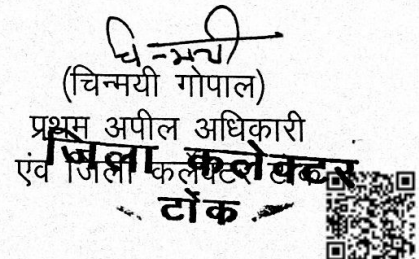 चिन्मयी
(चिन्मयी गोपाल)
प्रथम अपील अधिकारी
एंव जिला कलेक्टर
जिला कलेक्टर
टोंक